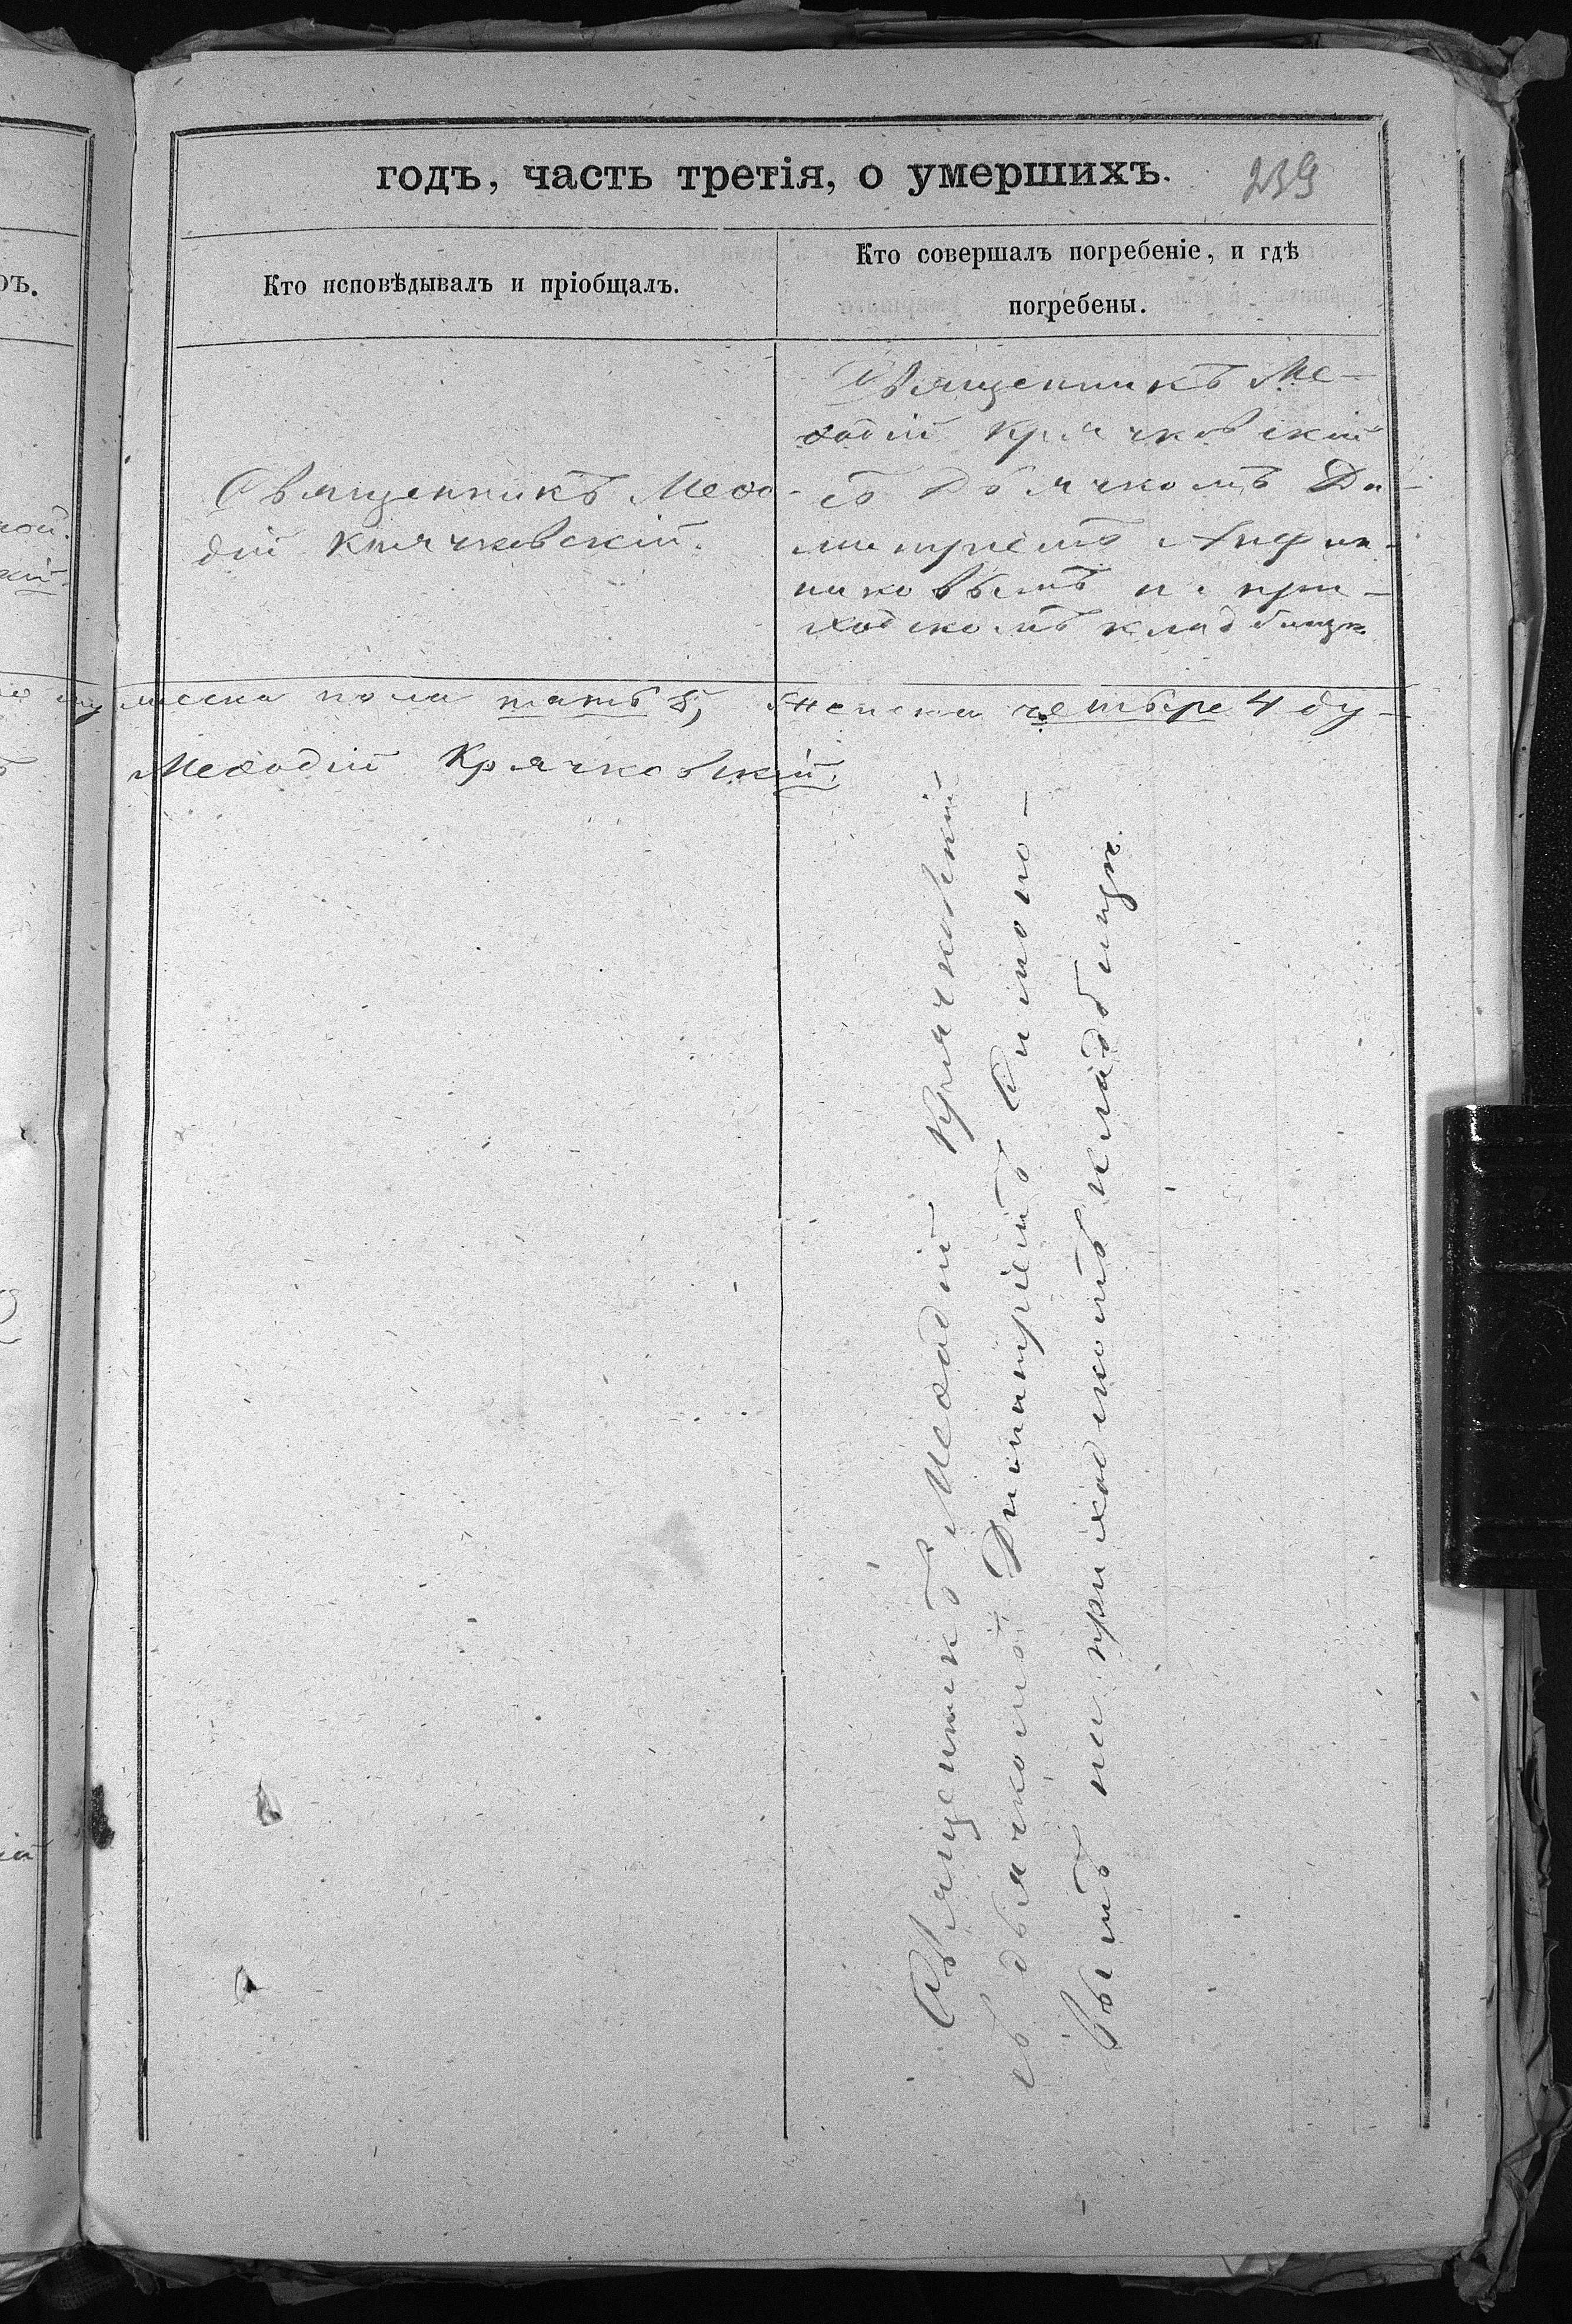 годъ, часть третія, о умершихъ.
239
Кто исповѣдывалъ и пріобщалъ.
Кто совершалъ погребеніе, и гдѣ
погребены.
Священникъ Меѳо-
дій Крячковскій.
Священникъ Ме-
ѳодій Крячковскій
съ дьячкомъ Ди-
митріемъ
вымъ на при-
ходскомъ кладбищѣ.
мужеска пола пять 5, женска четыре 4 ду-
Меѳодій Крячковскій.
Священникъ Меѳодій Крячковскій
съ дьячкомъ Димитріемъ
вымъ на приходскомъ кладбищѣ.
ръ.
ной.
кій.